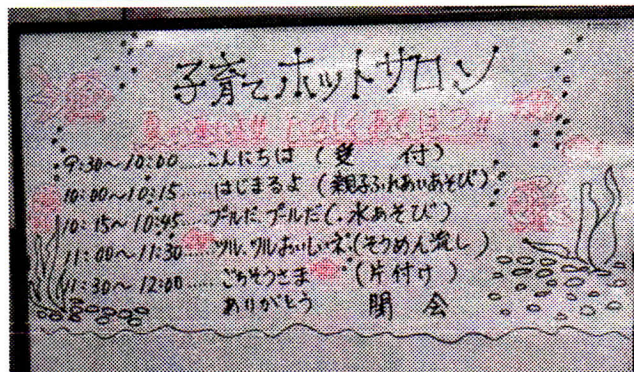 子育てホットサロン
たのしくあそぼう!!
9:30〜10:00……こんにちは(受 付)
10:00〜10:15……はじまるよ(親子ふれあいあそび)
10:15〜10:45……プールだ、プールだ(水あそび)
11:00〜11:30……ツル、ツルおいしいネ(そうめん流し)
11:30〜12:00……ごちそうさま(片付け)
ありがとう 閉 会